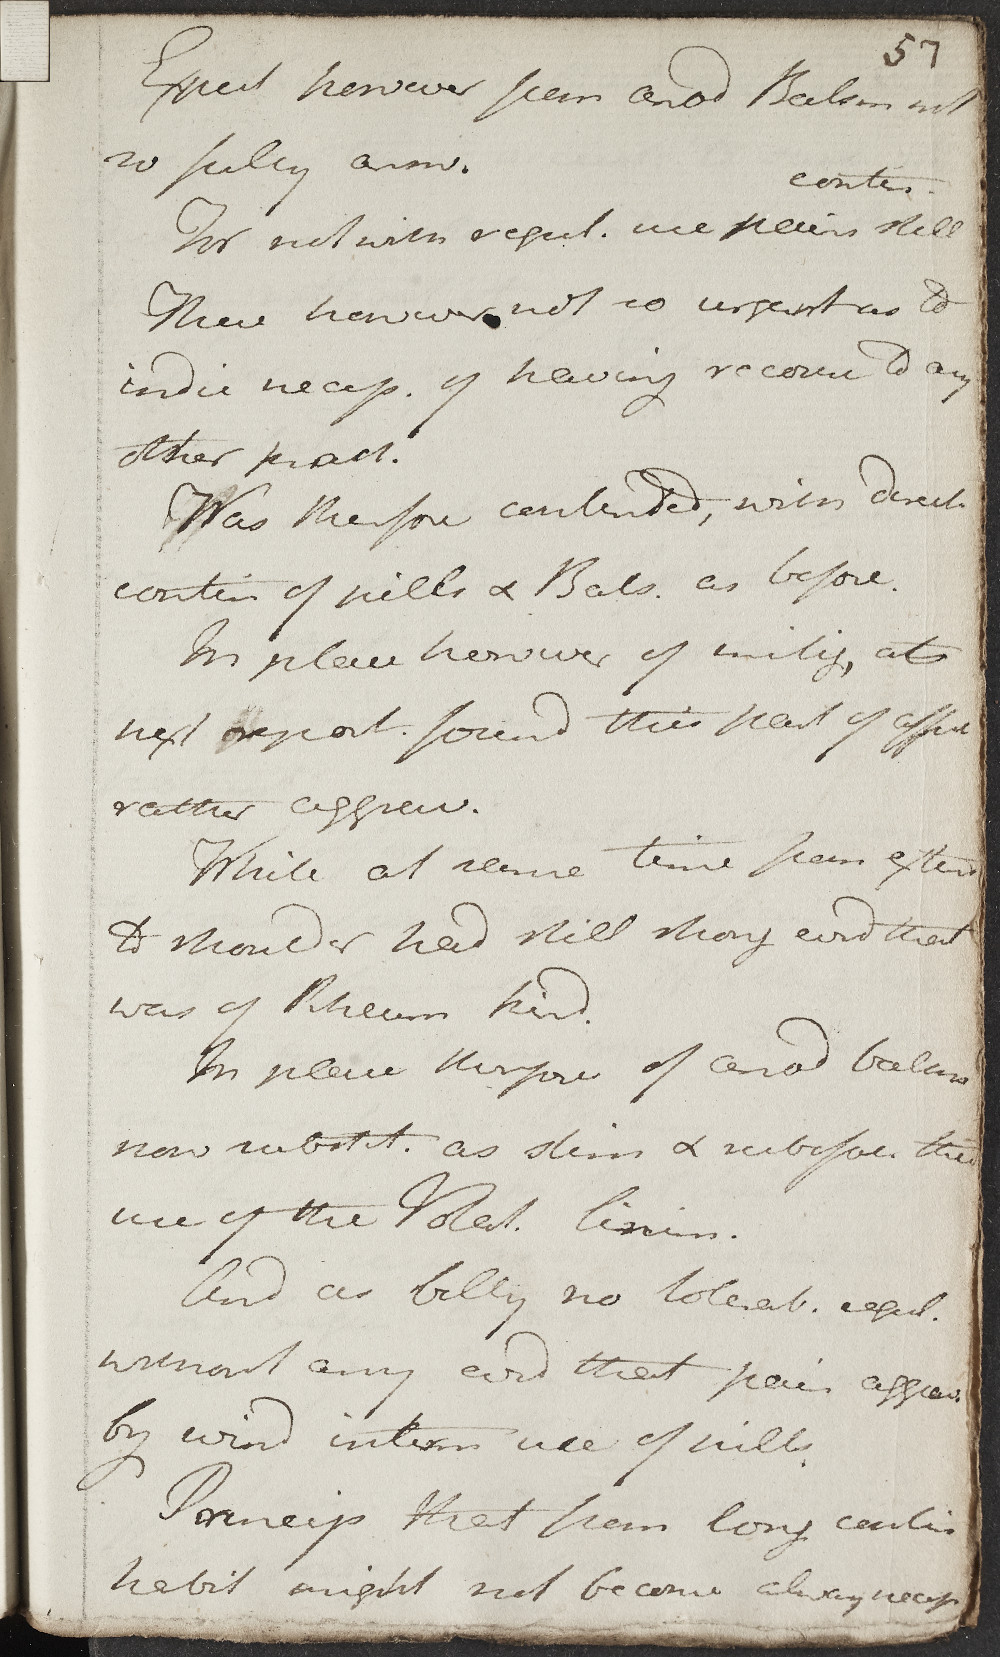 57
Expect however from anod Balsam not
so fully answ.
contin.
For notwith regul. use pains still
These however not so urgent as to
indic necess. of having recourse to any
other pract.
Was therefore contended, with direct.
contin of pills & Bals. as before.
In place however of mitig, at
next report. found this part of affect
rather aggrav.
While at same time from extens
to shoulder had still strong evid that
was of Rheum kind.
In place therefore of anod balsam
now substit. as stim & rubefac. the
use of the Volat. linim.
And as belly no tolerab. regul.
without any evid that pain aggrav.
by wind interm use of pills.
Princip that from long contin
habit might not become alway necess